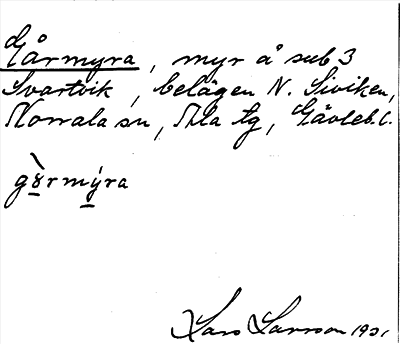 Gårmyra, myr å sub 3
Svartvik, belägen N. Siviken,
Norrala sn, Ala tg, Gävleb. l.
gårmýra
Lars Larsson 1931